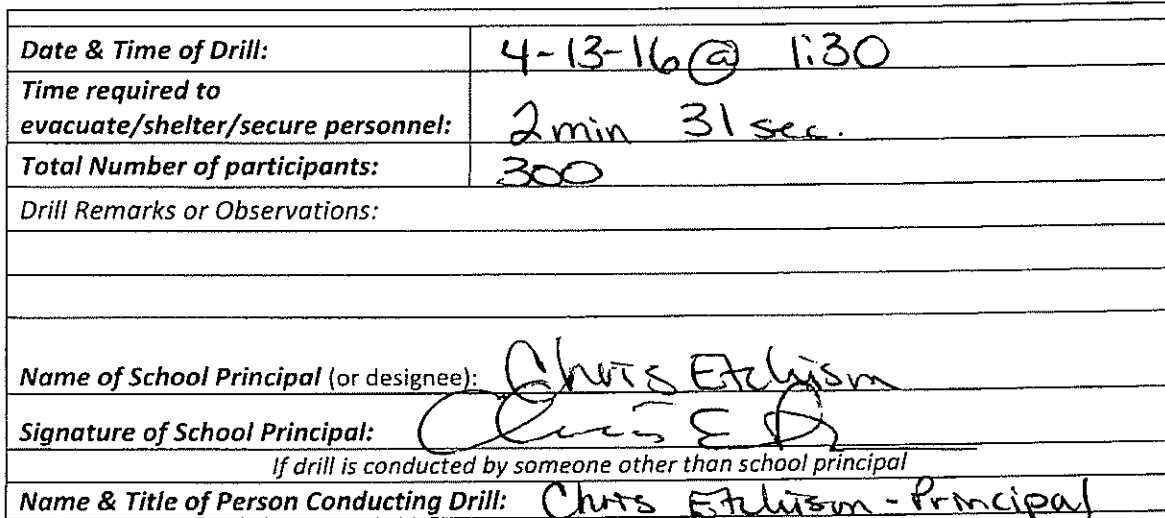 Date & Time of Drill: 4-13-16 @ 1:30
Time required to
evacuate/shelter/secure personnel: 2 min 31 sec.
Total Number of participants: 300
Drill Remarks or Observations:
Name of School Principal (or designee): Chris Etchison
Signature of School Principal:
If drill is conducted by someone other than school principal
Name & Title of Person Conducting Drill: Chris Etchison - Principal